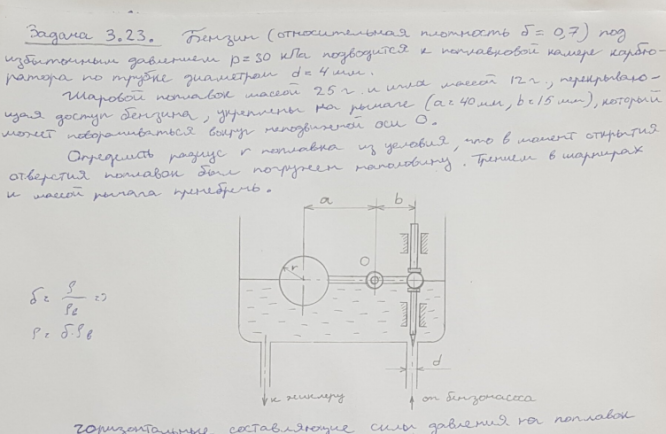 Задача 3.23. Бензин (относительная плотность δ = 0,7) под
избыточным давлением p = 30 кПа подводится к поплавковой камере карбю-
ратора по трубке диаметром d = 4 мм.
Шаровой поплавок массой 25 г. и игла массой 12 г., перекрываю-
щая доступ бензина, укреплены на рычаге (a = 40 мм, b = 15 мм), который
может поворачиваться вокруг неподвижной оси O.
Определить радиус r поплавка из условия, что в момент открытия
отверстия поплавок был погружен наполовину. Трением в шарнирах
и массой рычага пренебречь.
a
b
r
O
δ = ρ/ρв =>
ρ = δ·ρв
d
к жиклеру
от бензонасоса
горизонтальные составляющие силы давления на поплавок